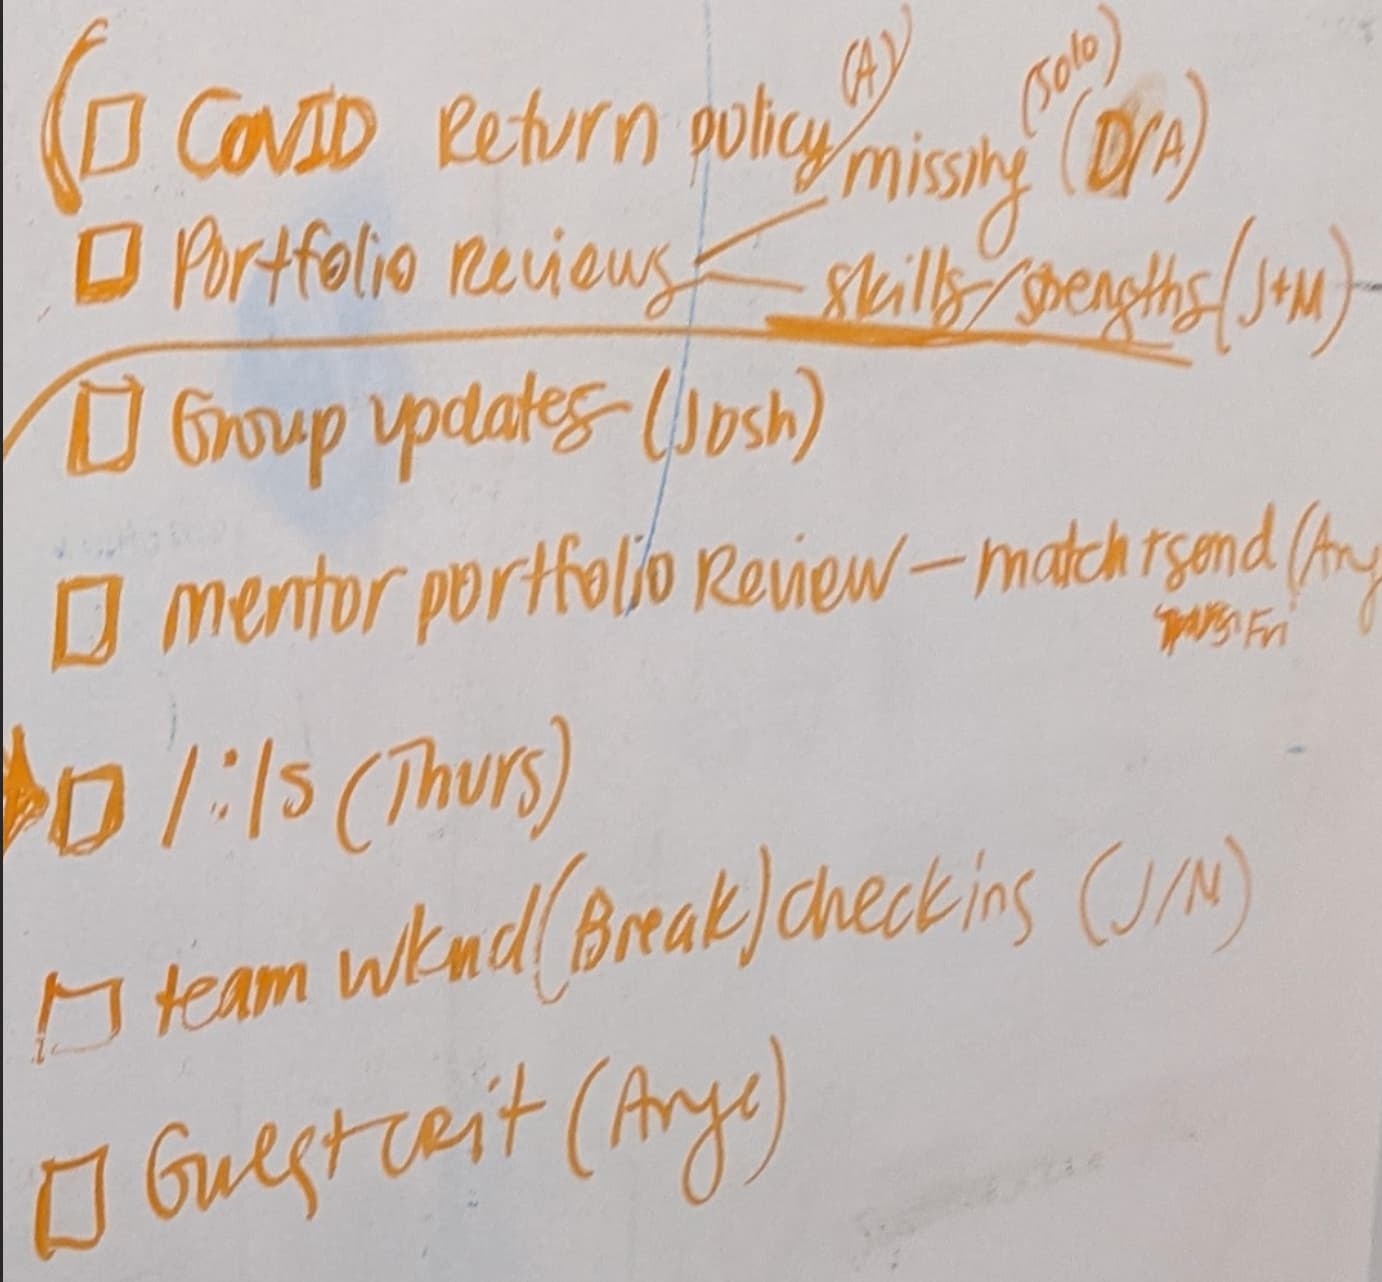 ☐ COVID Return policy (A)
☐ Portfolio Reviews
missing (Solo) (D/A)
skills/strengths (J+M)
☐ Group updates (Josh)
☐ mentor portfolio Review — match + send (Ang
Fri
☐ 1:1s (Thurs)
☐ team wknd (Break) checkins (J/M)
☐ Guest crit (Ange)